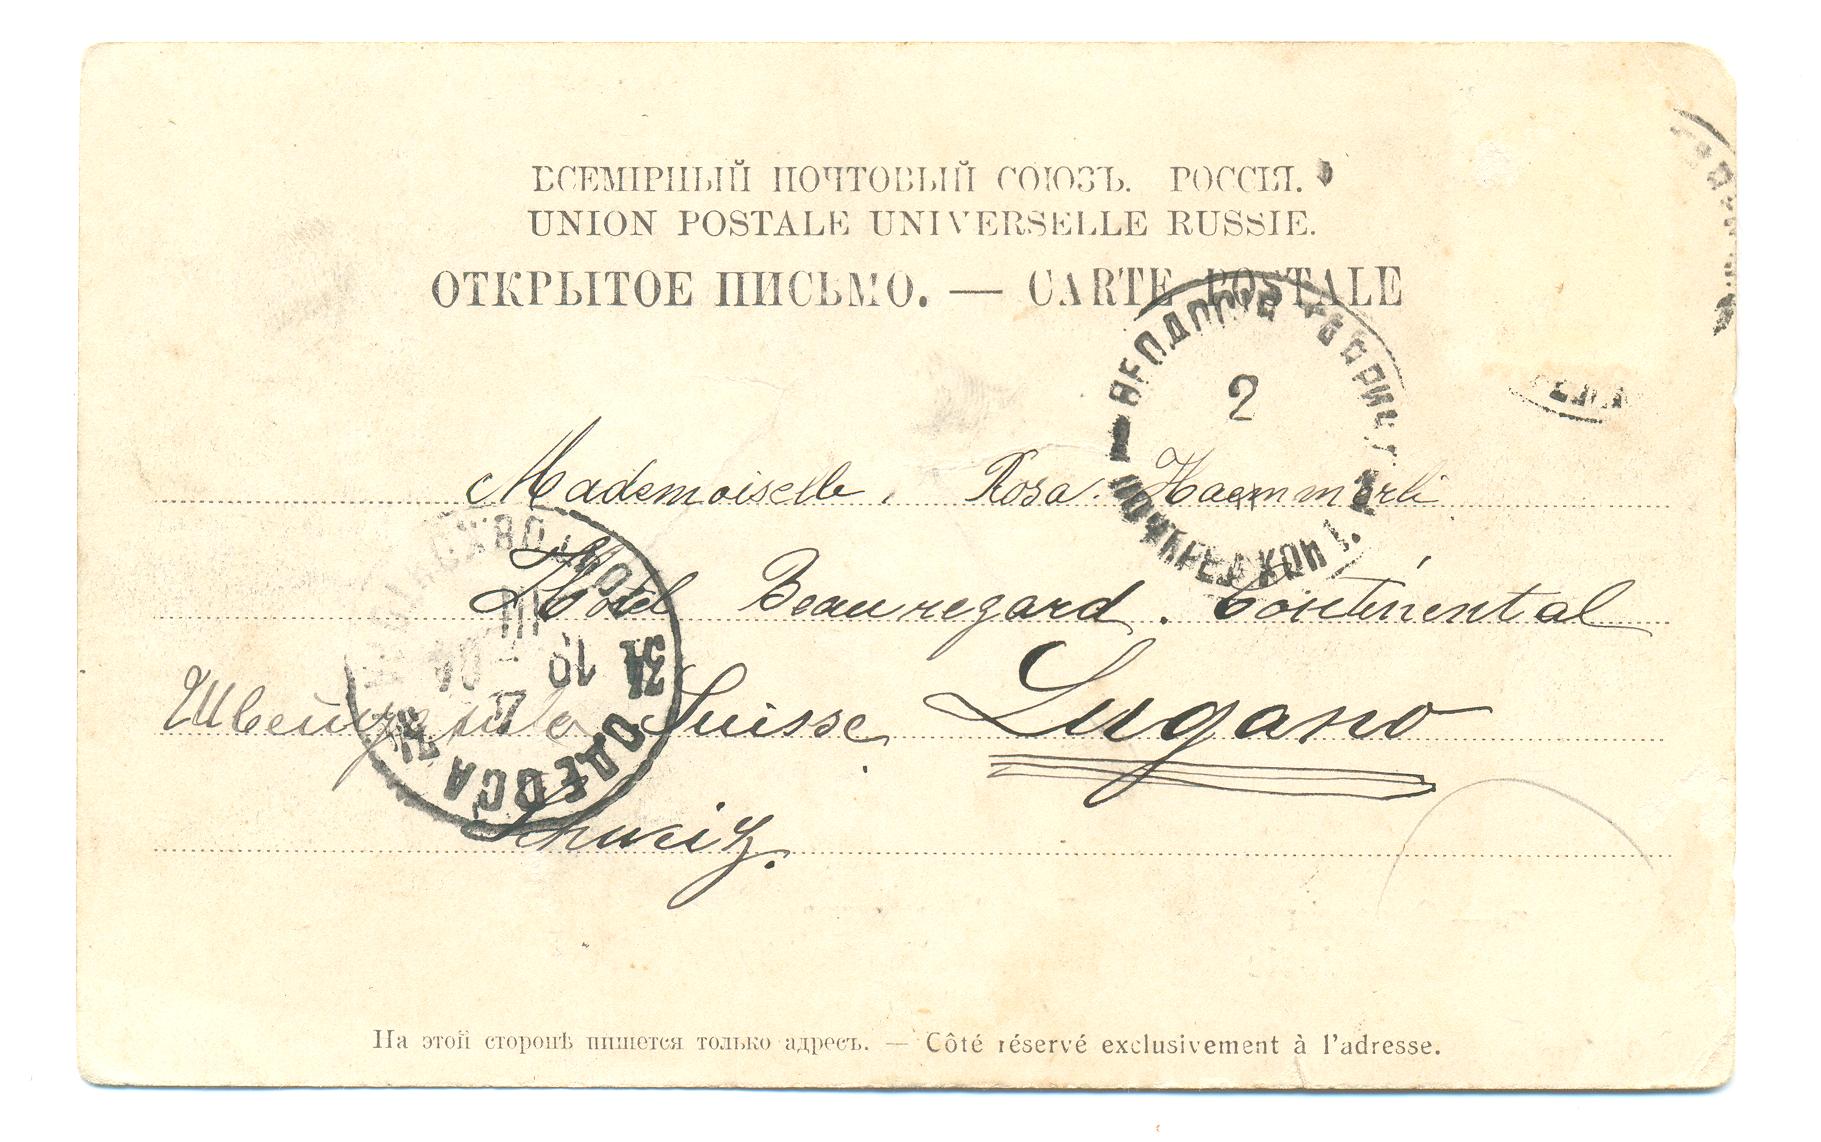 ВСЕМІРНЫЙ ПОЧТОВЫЙ СОЮЗЪ. РОССІЯ.
UNION POSTALE UNIVERSELLE RUSSIE.
ОТКРЫТОЕ ПИСЬМО. — CARTE POSTALE
ѲЕОДОСІЯ ТАВРИЧ.
2
Mademoiselle. Rosa. Haemmerli
Hotel Beauregard. Continental
Швейцарія Suisse Lugano
ОДЕССА
Schweiz.
На этой сторонѣ пишется только адресъ. — Côté réservé exclusivement à l'adresse.